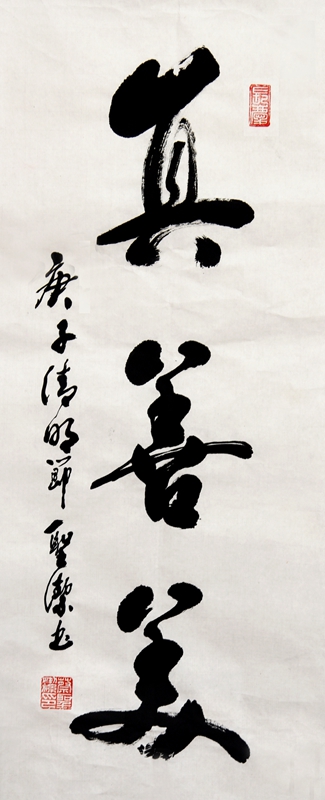 真善美
庚子清明節 聖潔书